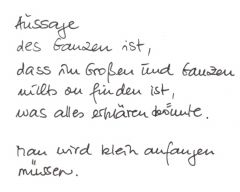 Aussage
des Ganzen ist,
dass im Großen und Ganzen
nichts zu finden ist,
was alles erklären könnte.
Man wird klein anfangen
müssen.